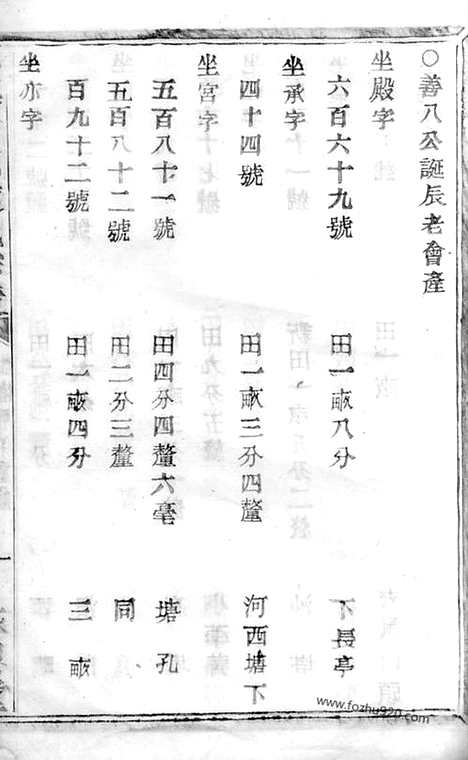 ○善八公誕辰老會產
坐殿字
六百六十九號 田一畝八分 下長亭
坐承字
四十四號 田一畝三分四釐 河西塘下
坐宮字
五百八十一號 田四分四釐六毫 塘孔
五百八十二號 田二分三釐 同
百九十二號 田一畝四分 三畝
坐亦字
www.fozhu920.com